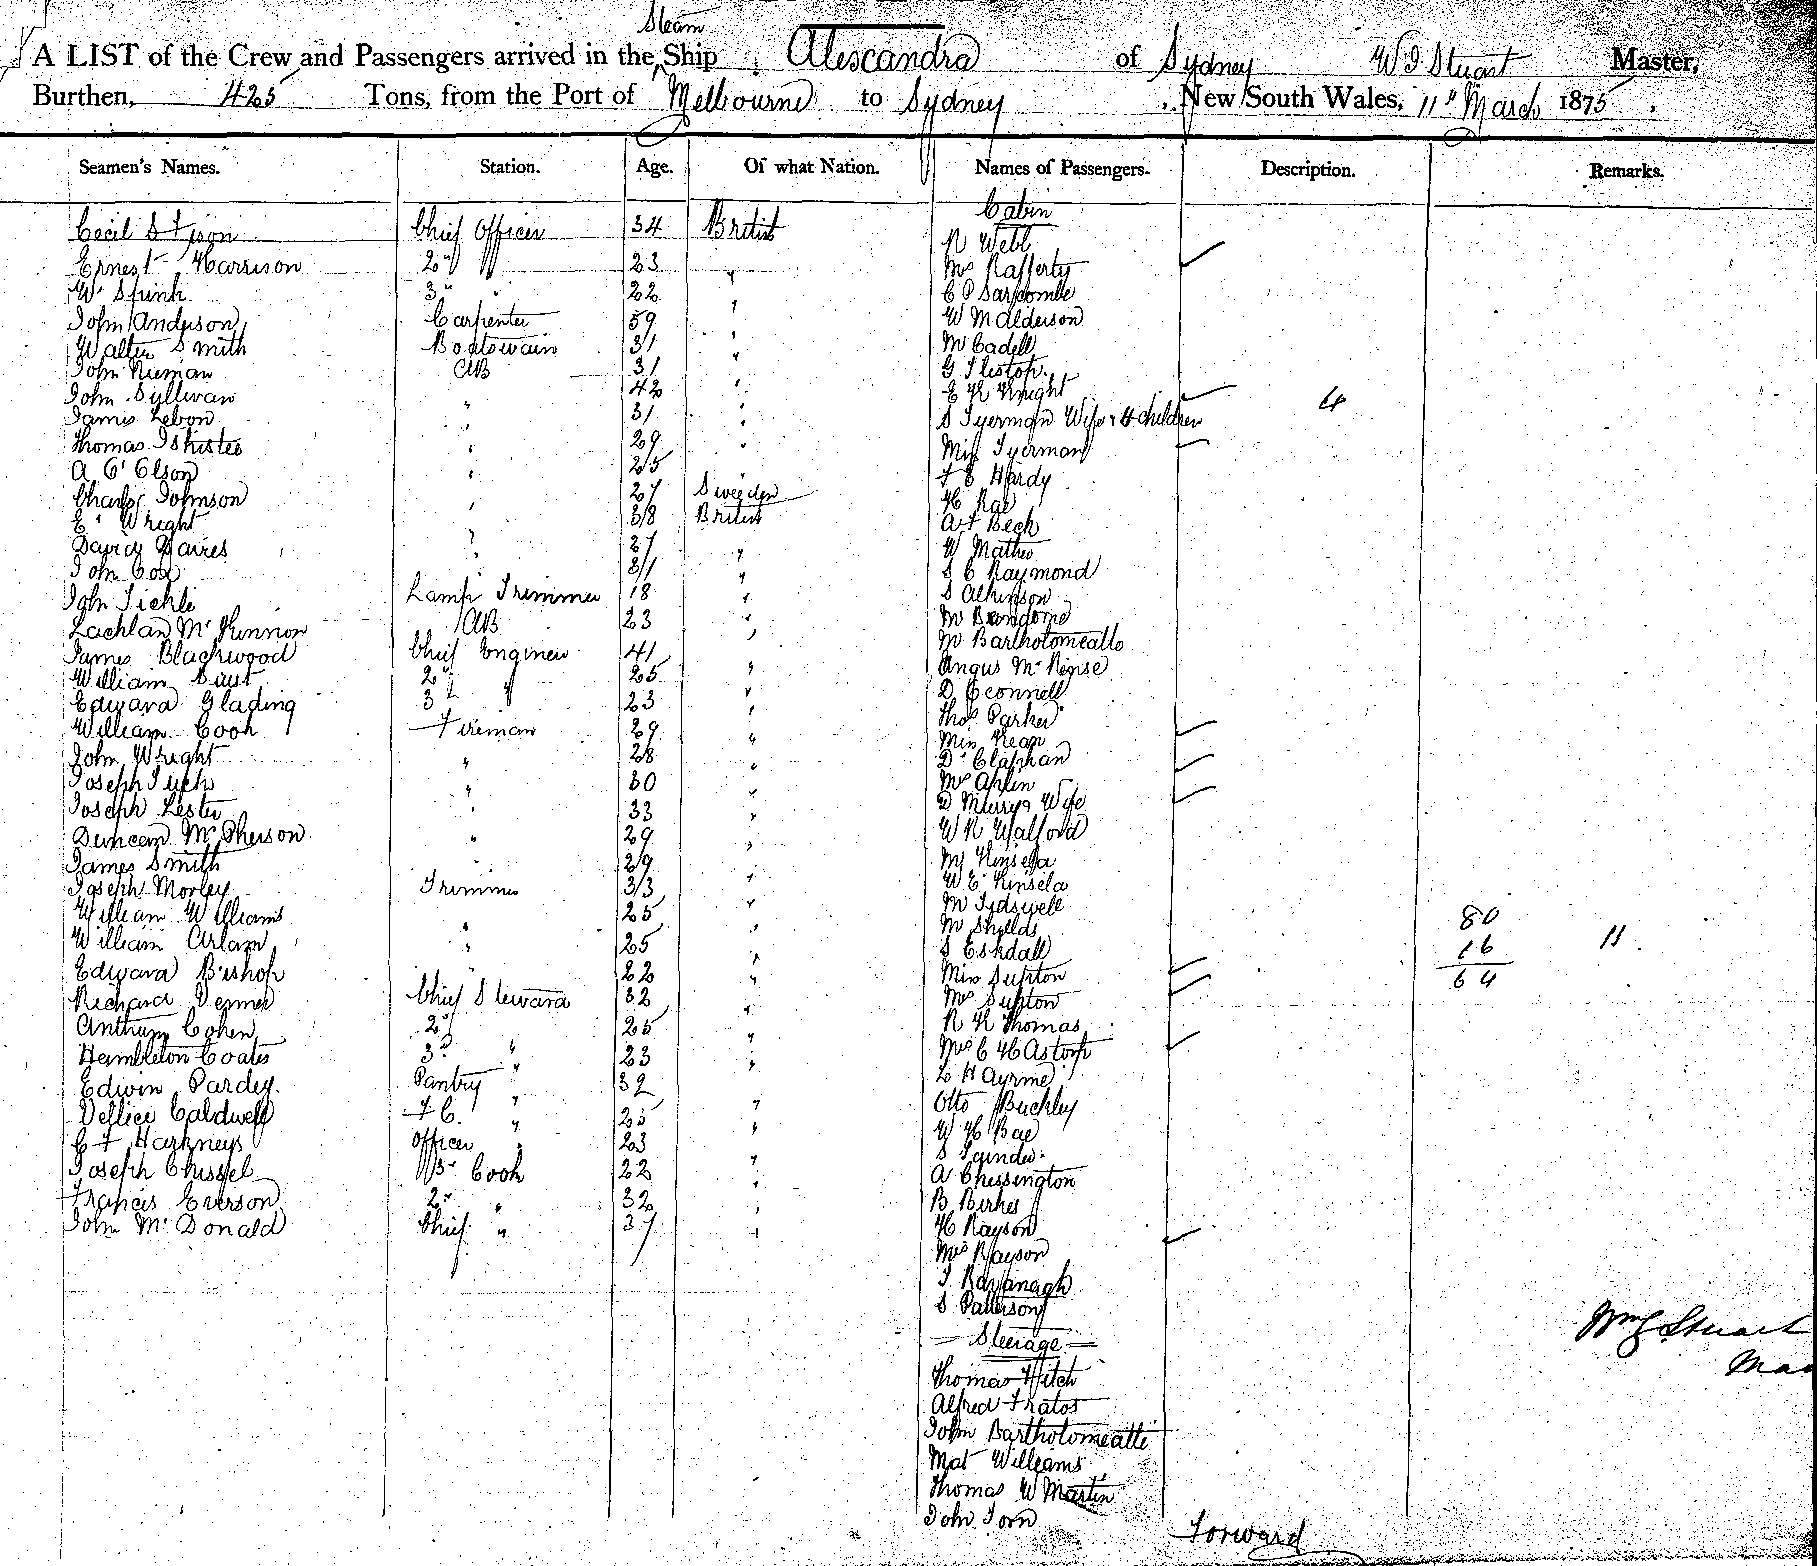 Steam
A LIST of the Crew and Passengers arrived in the Ship Alexandra of Sydney W J Stuart Master,
Burthen, 425 Tons, from the Port of Melbourne to Sydney, New South Wales, 11" March 1875.
Seamen's Names. Station. Age. Of what Nation. Names of Passengers. Description. Remarks.
Cabin
Cecil Chief Officer 34 British
R Webb
Ernest Harrison 2" " 23 "
Mrs Rafferty
W. Spink 3" " 22 "
John Anderson Carpenter 59 "
W M Alderson
Walter Smith Boatswain 31 "
M Cadell
John Nieman AB 31 "
John Sullivan " 42 "
E R Knight
James Lebon " 31 "
S Tyerman Wife & 4 Children 4
Thomas " 29 "
Miss Tyerman
A C Olson " 25 "
F E Hardy
Charles Johnson " 27 Sweeden
H Rae
E. Wright " 38 British
A F Beck
David Davies " 27 "
W Mathe
John Cox " 31 "
S C Raymond
John Tickle Lamp Trimmer 18 "
S Atkinson
Lachlan McKinnon AB 23 "
M
James Blackwood Chief Engineer 41 "
M Bartholomeallo
William 2" 25 "
Angus
Edward Glading 3" " 23 "
D Oconnell
William Cook Fireman 29 "
Thos Parker
Miss Kean
John Wright " 28 "
Dr Clapham
Joseph " 30 "
Mrs Aplin
Joseph Lester " 33 "
D Wife
Duncan McPherson " 29 "
W R Walford
James Smith " 29 "
M Kinsela
Joseph Morley Trimmer 33 "
W E Kinsela
William Williams " 25 "
M Tidswell
80
M Shields
William Arlam " 25 "
S Eskdall
16 11
Edward Bishop 22 "
Miss Supton
64
Richard Chief Steward 32 "
Mrs Supton
Anthony Cohen 2" 25 "
R H Thomas
Hambleton Coates 3" " 23 "
Mrs C H Astorp
Edwin Pardey Pantry " 32
L H Ayrme
Caldwell F C. " 25 "
Otto Buckley
C F Harkneys Officer " 23 "
W H Bae
Joseph Chissel Cook 22 "
A Chessington
Francis Everson 2" " 32 "
B Birkes
John McDonald Chief " 37 "
H Rayson
Mrs Rayson
J Kavanagh
S Patterson
Steerage
Wm J Stuart
Thomas Hitch
Alfred Fratos
John Bartholomeatte
Mat Williams
Thomas W Martin
John Torn
Forward